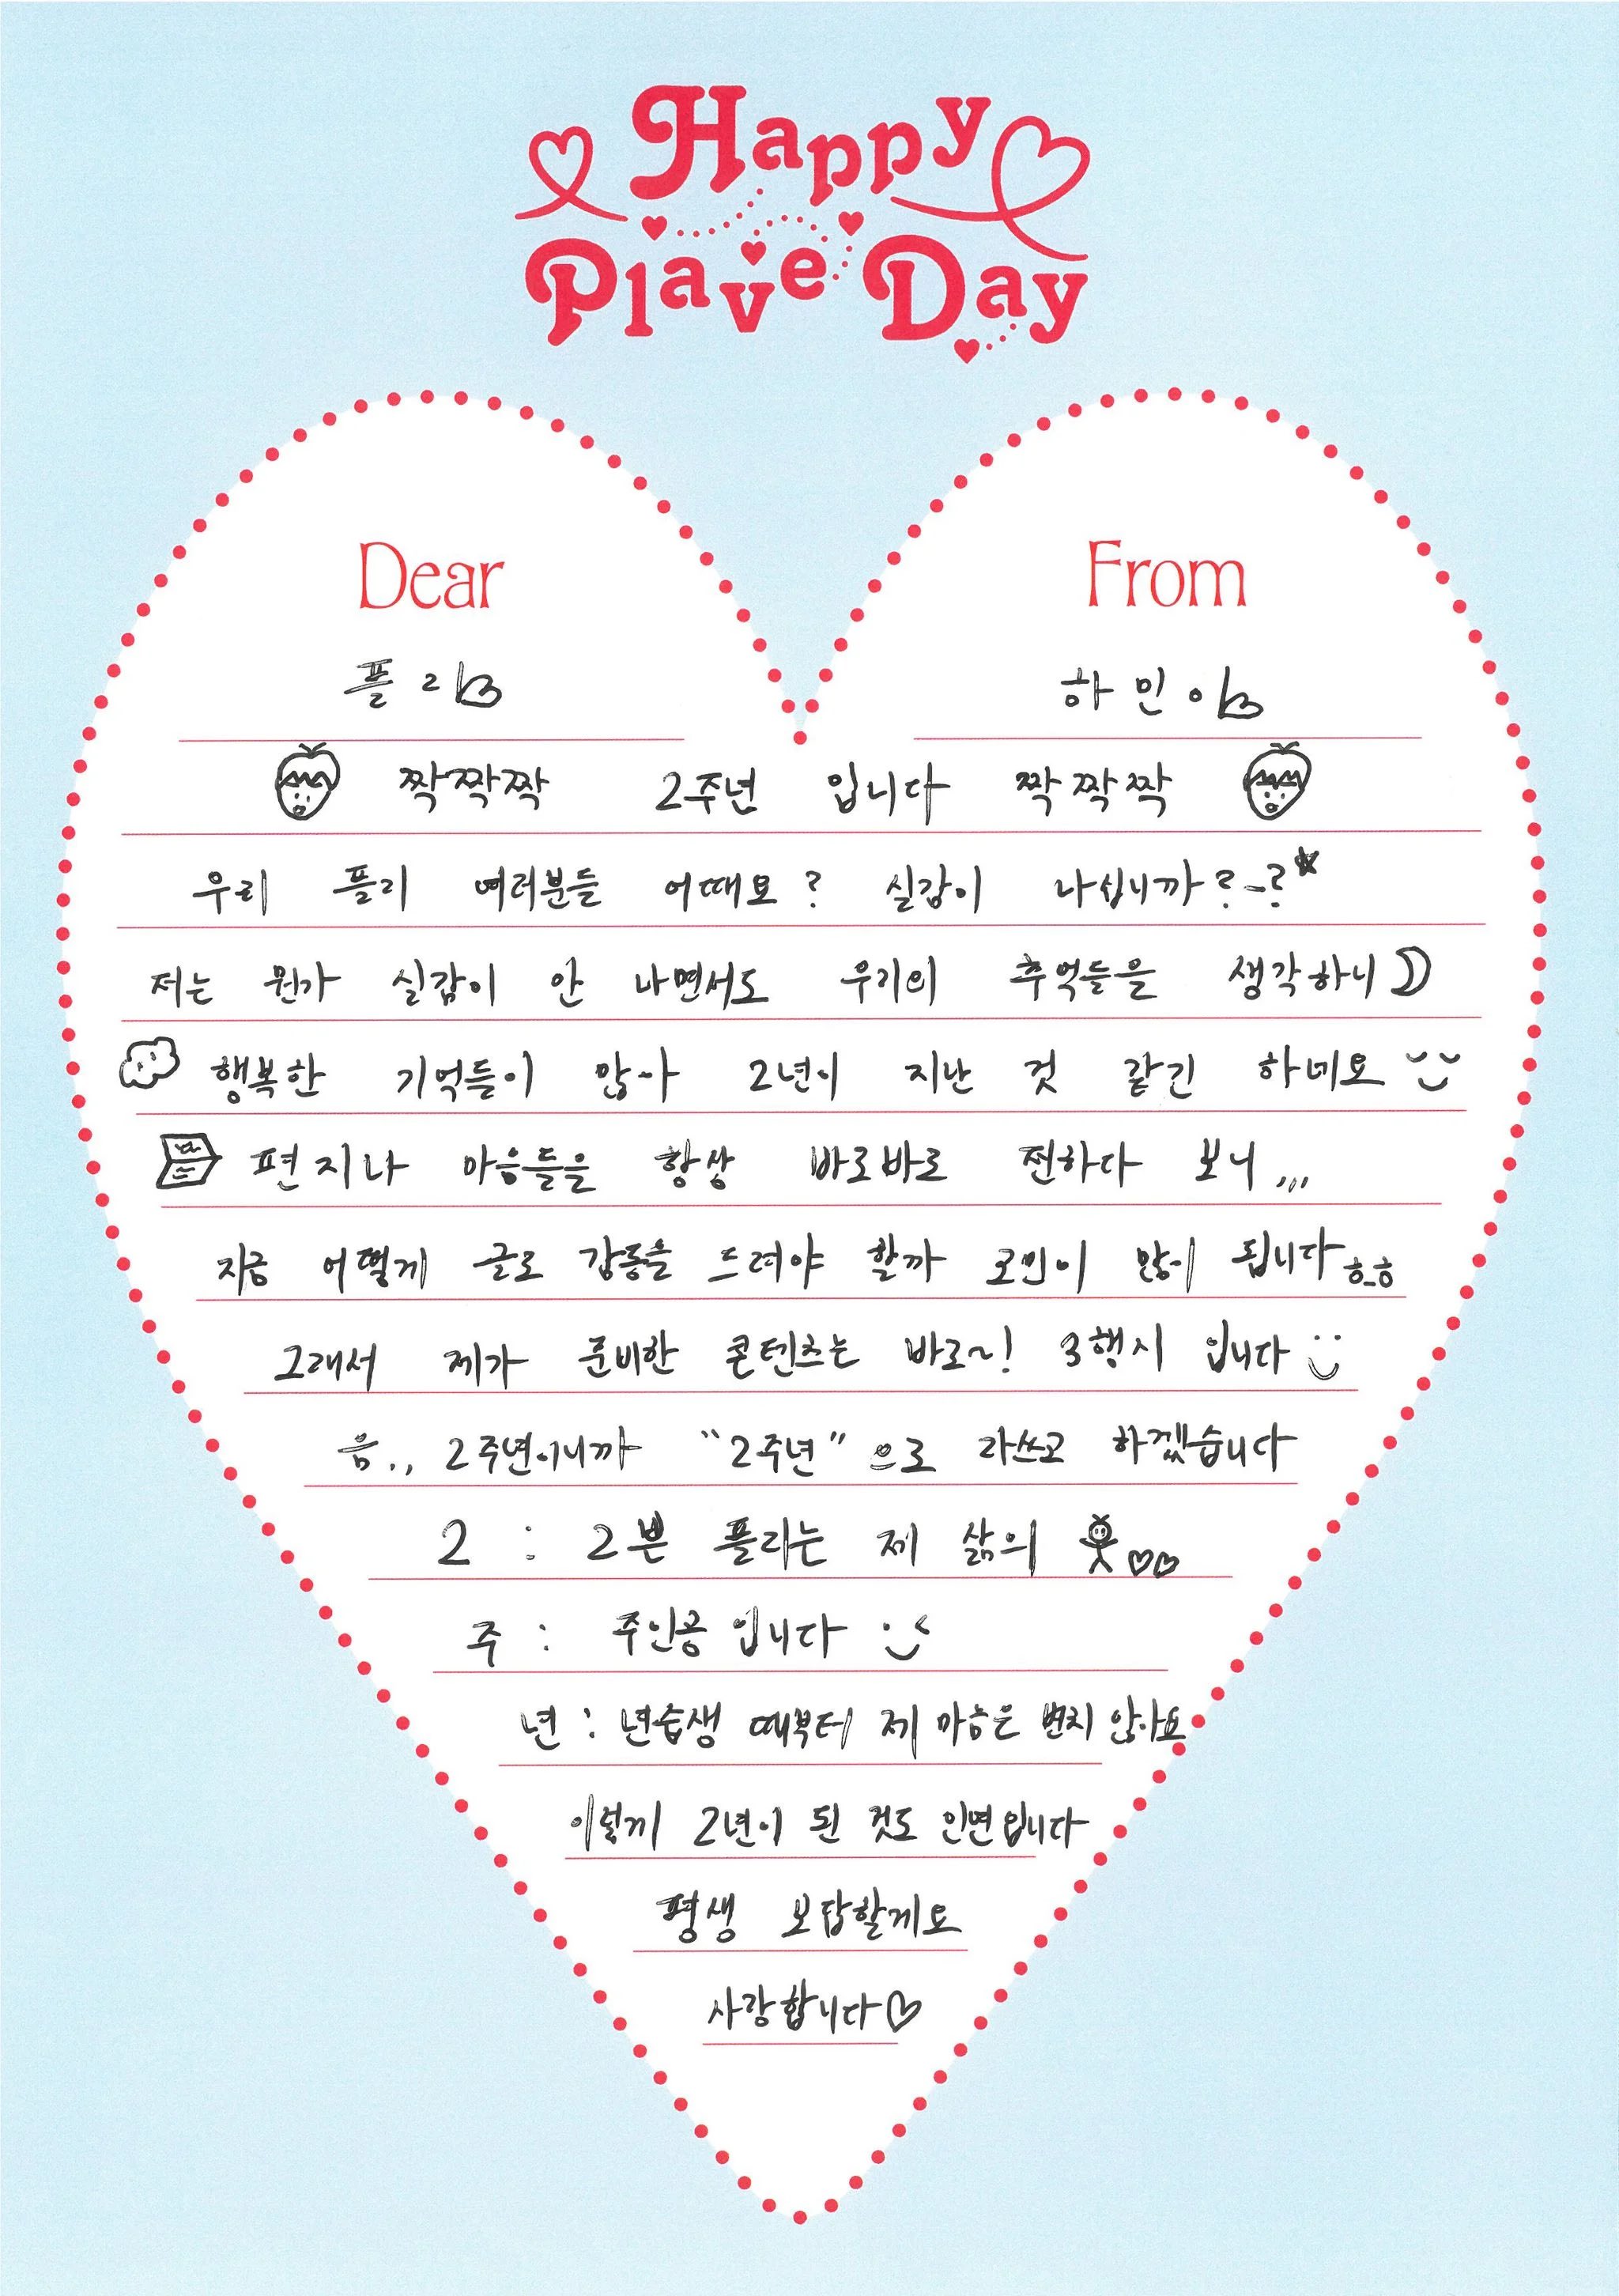 Happy
Plave Day
Dear
From
플리
하민이
짝짝짝 2주년 입니다 짝짝짝
우리 플리 여러분들 어때요? 실감이 나십니까?-?
저는 뭔가 실감이 안 나면서도 우리의 추억들을 생각하니
행복한 기억들이 많아 2년이 지난 것 같긴 하네요
편지나 마음들을 항상 바로바로 전하다 보니,,,
지금 어떻게 글로 감동을 드려야 할까 고민이 많이 됩니다ㅎ_ㅎ
그래서 제가 준비한 콘텐츠는 바로~! 3행시 입니다
음.,, 2주년이니까 "2주년"으로 하겠습니다
2 : 2쁜 플리는 제 삶의
주 : 주인공 입니다
년 : 년습생 때부터 제 마음은 변치 않아요
이렇게 2년이 된 것도 인연입니다
평생 보답할게요
사랑합니다♡